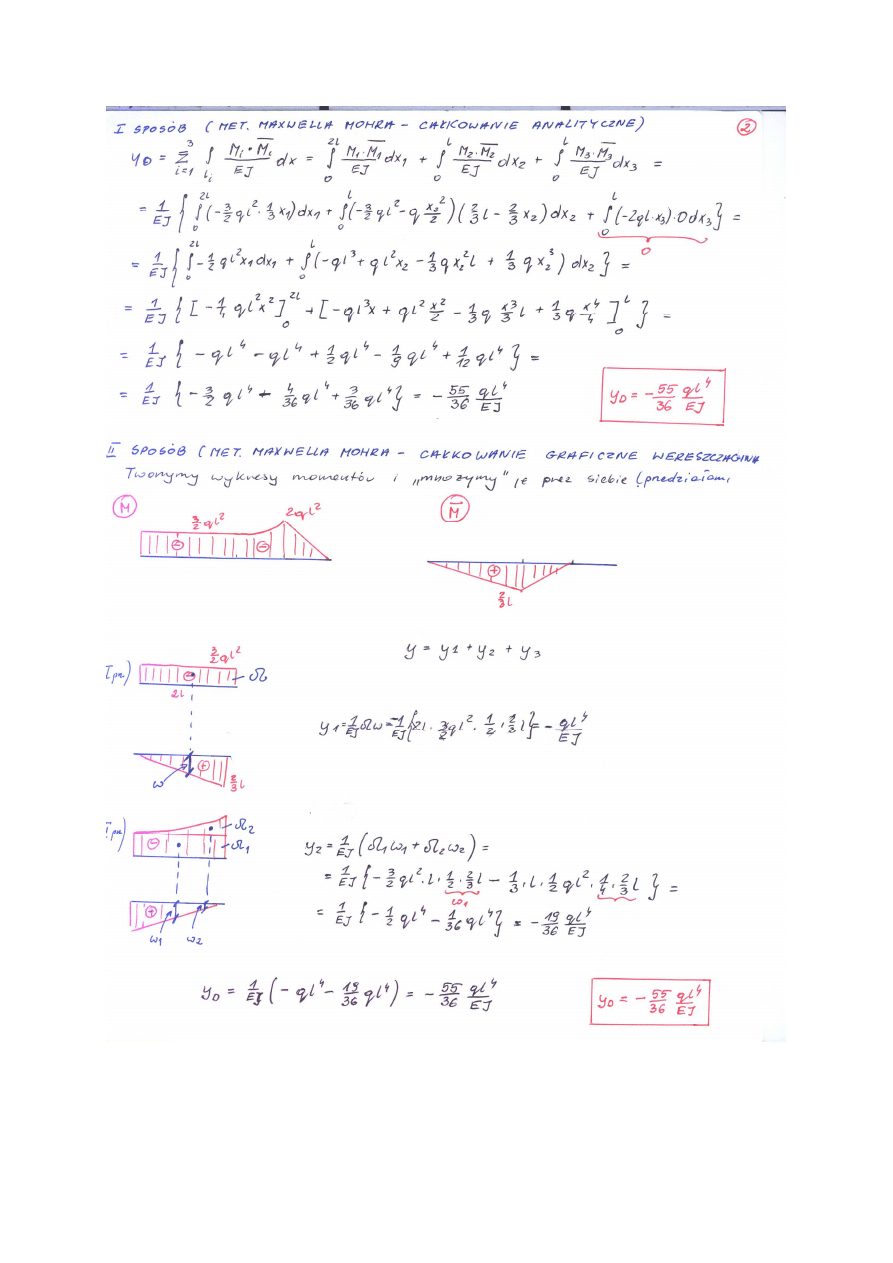 I SPOSÓB (MET. MAXWELLA MOHRA - CAŁKOWANIE ANALITYCZNE) 2
y_D = Σ_{i=1}^{3} ∫_{l_i} (M_i·M̄_i)/EJ dx = ∫_0^{2l} (M_1·M̄_1)/EJ dx_1 + ∫_0^l (M_2·M̄_2)/EJ dx_2 + ∫_0^l (M_3·M̄_3)/EJ dx_3 =
= 1/EJ { ∫_0^{2l} (-3/2 ql²·1/3 x_1)dx_1 + ∫_0^l (-3/2 ql² - q x_2²/2)(2/3 l - 2/3 x_2)dx_2 + ∫_0^l (-2ql·x_3)·0 dx_3 } =
0
= 1/EJ { ∫_0^{2l} -1/2 ql²x_1dx_1 + ∫_0^l (-ql³ + ql²x_2 - 1/3 q x_2² l + 1/3 q x_2³) dx_2 } =
= 1/EJ { [-1/4 ql²x²]_0^{2l} + [-ql³x + ql² x²/2 - 1/3 q x³/3 l + 1/3 q x⁴/4]_0^l } =
= 1/EJ { -ql⁴ - ql⁴ + 1/2 ql⁴ - 1/9 ql⁴ + 1/12 ql⁴ } =
= 1/EJ { -3/2 ql⁴ - 4/36 ql⁴ + 3/36 ql⁴ } = -55/36 ql⁴/EJ
y_D = -55/36 ql⁴/EJ
II SPOSÓB (MET. MAXWELLA MOHRA - CAŁKOWANIE GRAFICZNE WERESZCZAGINA
Tworzymy wykresy momentów i „mnożymy" je przez siebie (przedziałami
M M̄
3/2 ql² 2ql²
⊖ ⊖
⊕
2/3 l
y = y1 + y2 + y3
I prz) 3/2 ql²
⊖ Ω
2l
y1 = 1/EJ Ωω = -1/EJ {2l · 3/2 ql² · 1/2 · 2/3 l} = - ql⁴/EJ
ω ⊕ 2/3 l
Ω2
⊖ Ω1
y2 = 1/EJ (Ω1ω1 + Ω2ω2) =
= 1/EJ { -3/2 ql²·l·1/2·2/3 l - 1/3·l·1/2 ql²·1/4·2/3 l } =
ω1
= 1/EJ { -1/2 ql⁴ - 1/36 ql⁴ } = -19/36 ql⁴/EJ
⊕
ω1 ω2
y_D = 1/EJ (-ql⁴ - 19/36 ql⁴) = -55/36 ql⁴/EJ
y_D = -55/36 ql⁴/EJ